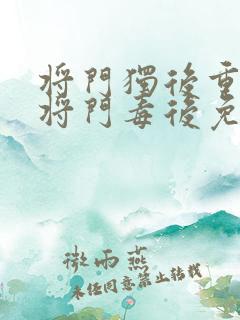 將門獨後重
將門毒後免
微雨燕
未任同意禁止转載